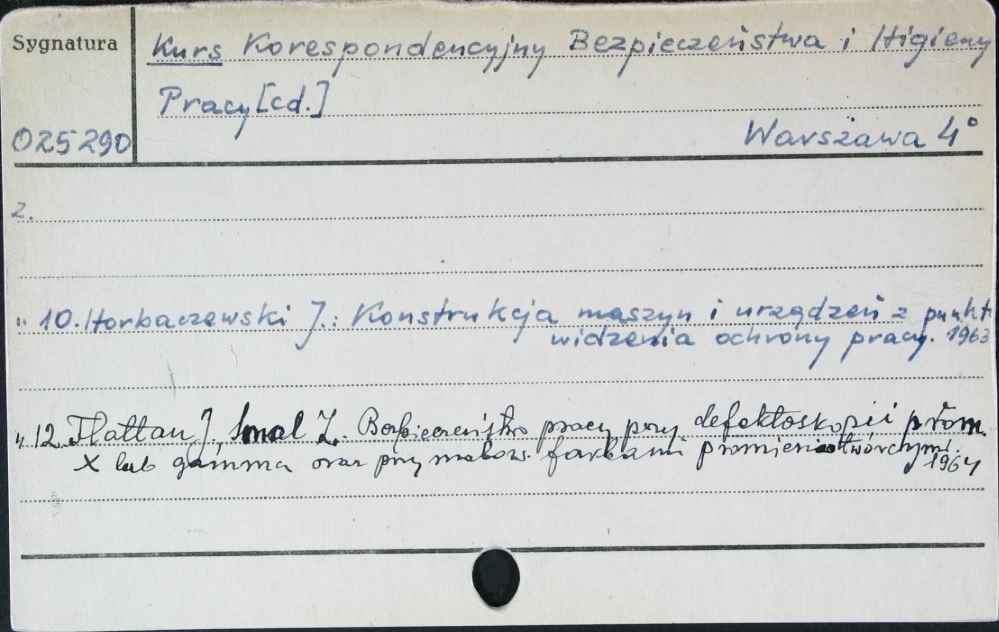 Sygnatura
Kurs Korespondencyjny Bezpieczeństwa i Higieny
Pracy [cd.]
025290
Warszawa 4°
z.
" 10. Horbaczewski J.: Konstrukcja maszyn i urządzeń z punkt
widzenia ochrony pracy. 1963
" 12. Flattau J, Smal Z. Bezpieczeństwo pracy przy defektoskopii prom.
X lub gamma oraz przy malow. farbami promieniotwórczymi.
1964